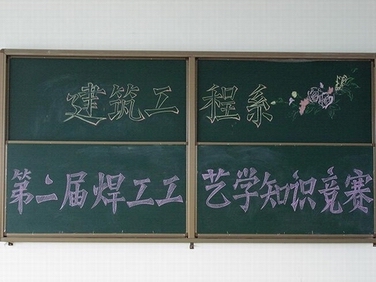 建筑工程系
第二届焊工工艺学知识竞赛